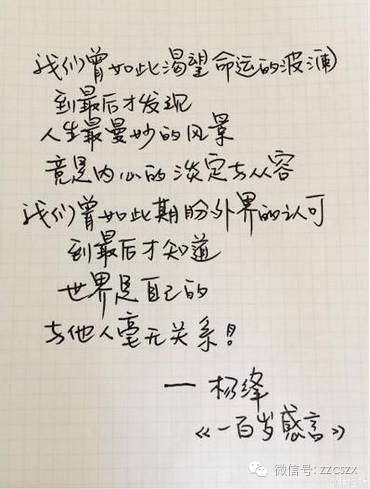 我们曾如此渴望命运的波澜
到最后才发现
人生最曼妙的风景
竟是内心的淡定与从容
我们曾如此期盼外界的认可
到最后才知道
世界是自己的
与他人毫无关系!
— 杨绛
《一百岁感言》
微信号: zzcszx